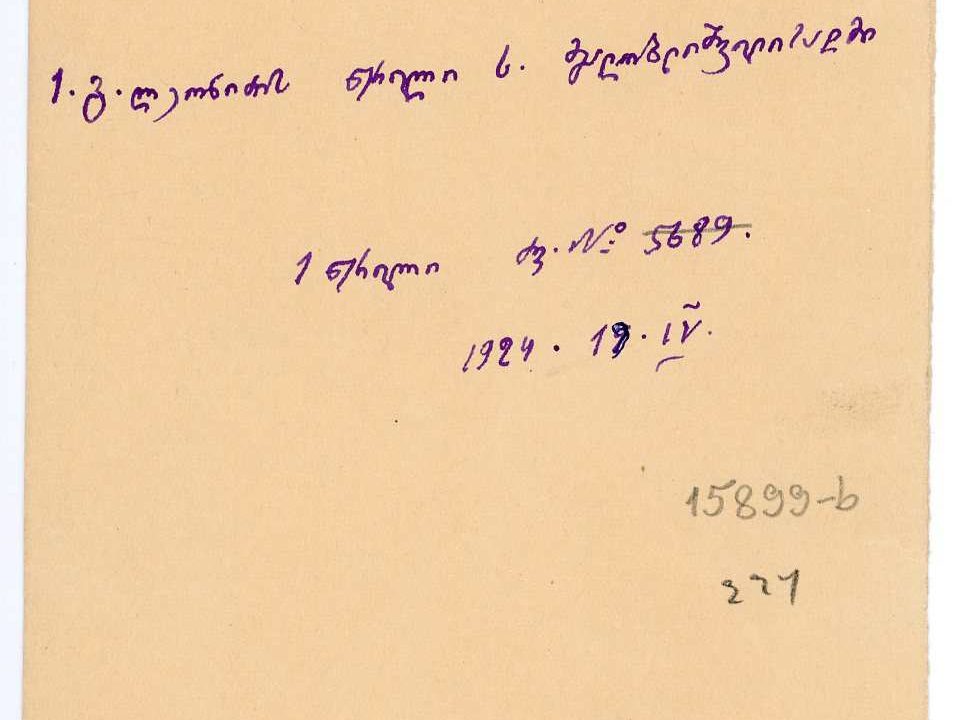 1. გ. ლეონიძის წერილი ს. მგალობლიშვილისადმი
1 წერილი ქ. № 5689.
1924. 19. IV.
15899-ხ
221